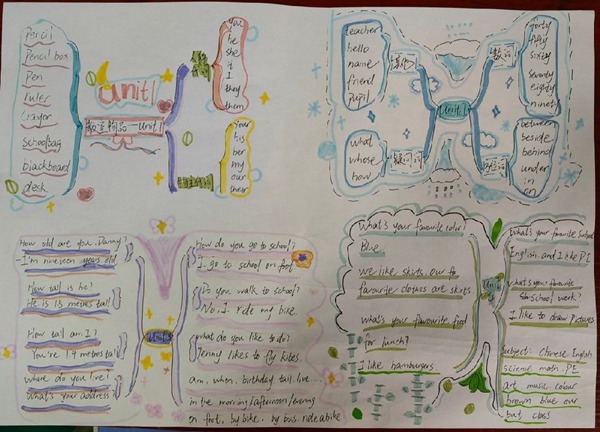 Pencil
Pencil box
Pen
ruler
Crayon
Schoolbag
blackboard
desk
unit 1
教室物品-Unit 1
You
he
she
it
I
they
them
Your
his
her
my
our
their
teacher
hello
name
friend
pupil
what
whose
how
疑问词
Unit 1
forty
fifty
sixty
seventy
eighty
ninety
between
beside
behind
under
in
on
How old are you, Danny?
I'm nineteen years old.
How tall is he?
He is 1.3 metres tall
How tall am I?
You're 1.7 metres tall
Where do you live?
What's your address
How do you go to school?
I go to school on foot
Do you walk to school?
No, I ride my bike.
What do you like to do?
Jenny likes to fly kites.
am, when, birthday tall live...
in the morning/afternoon/evening
on foot, by bike, by bus, ride a bike
What's your favourite color?
Blue.
we like skirts. our
favourite clothes are skirts
what's your favourite food
for lunch?
I like hamburgers
What's your favourite School
English and I like PE
what's your favourite
school work?
I like to draw pictures
Subject: Chinese English
Science math PE
art music colour
brown blue our
but class